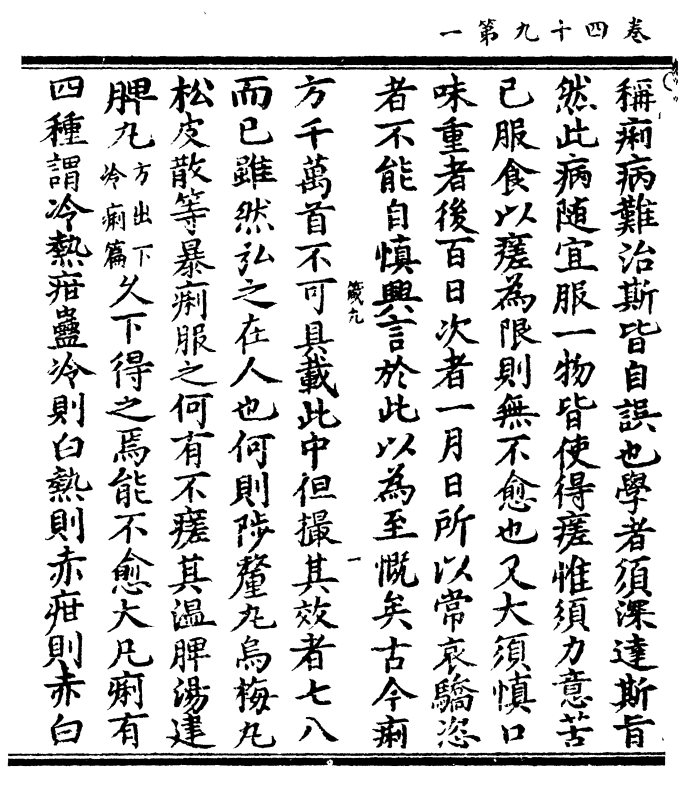 卷四十九第一
稱痢病難治斯皆自誤也學者須深達斯旨
然此病隨宜服一物皆使得瘥惟須力意苦
己服食以瘥為限則無不愈也又大須慎口
味重者後百日次者一月日所以常哀驕恣
者不能自慎興言於此以為至慨矣古今痢
方千萬首不可具載此中但撮其效者七八
而已雖然弘之在人也何則陟釐丸烏梅丸
松皮散等暴痢服之何有不瘥其溫脾湯建
脾丸方出下冷痢篇久下得之焉能不愈大凡痢有
四種謂冷熱疳蠱冷則白熱則赤疳則赤白
箴九
一